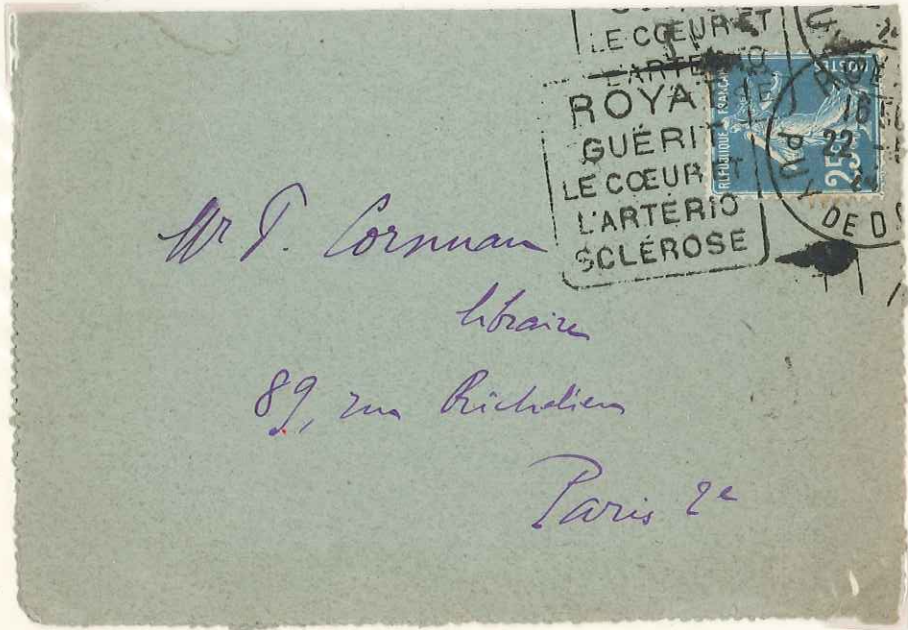 LE CŒUR ET
L'ARTERIO
ROYAT
GUÉRIT
LE CŒUR ET
L'ARTÉRIO
SCLÉROSE
REPUBLIQUE FRANCAISE
POSTES
25
16
22
PUY DE D
Mr P. Cornuau
libraire
89, rue Richelieu
Paris 2e